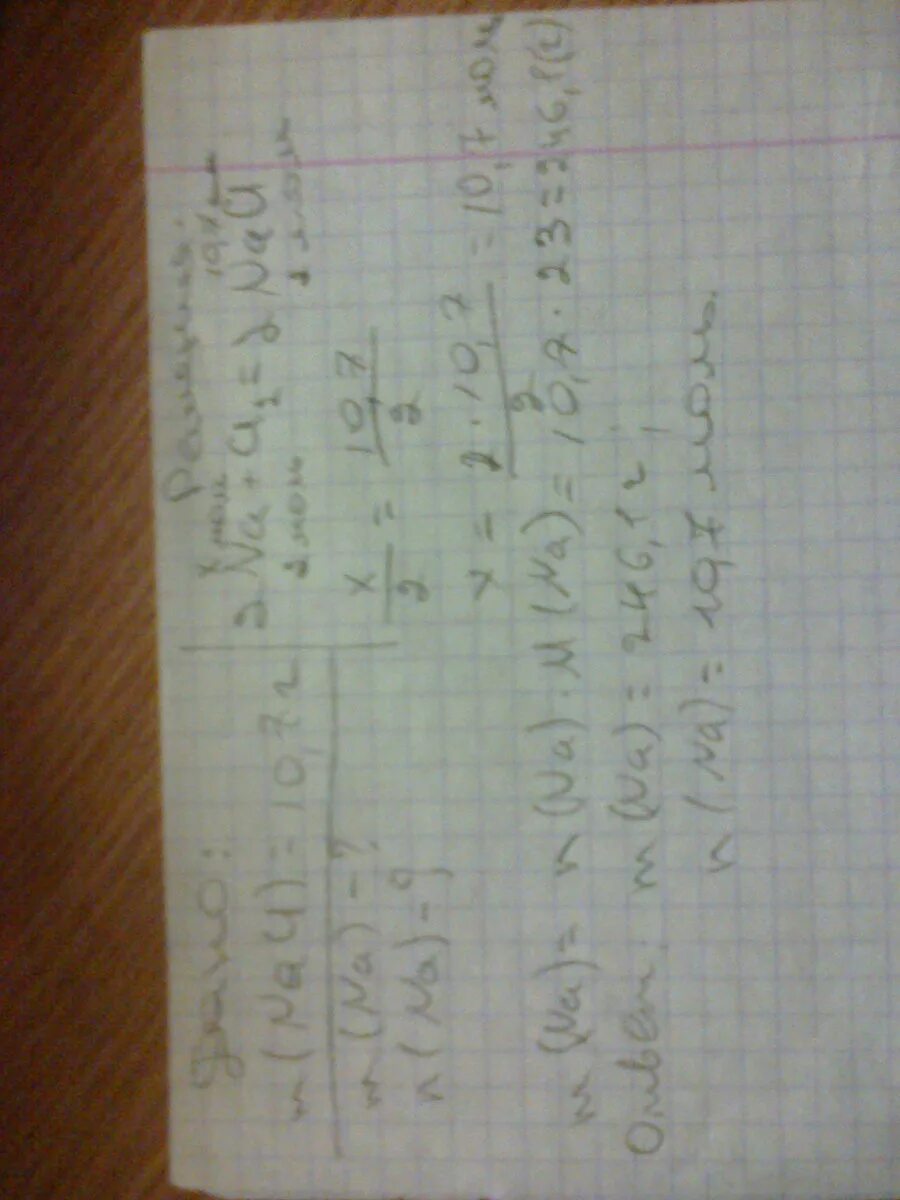 Дано:
m(NaCl)=10,7г
m(Na)-?
n(Na)-?
Решение:
x моль 10,7 моль
2Na+Cl₂=2NaCl
2 моль 2 моль
x/2 = 10,7/2
x = 2·10,7/2 = 10,7 мол
m(Na)= n(Na)·M(Na)=10,7·23=246,1(г)
Ответ: m(Na)=246,1г,
n(Na)=10,7 моль.